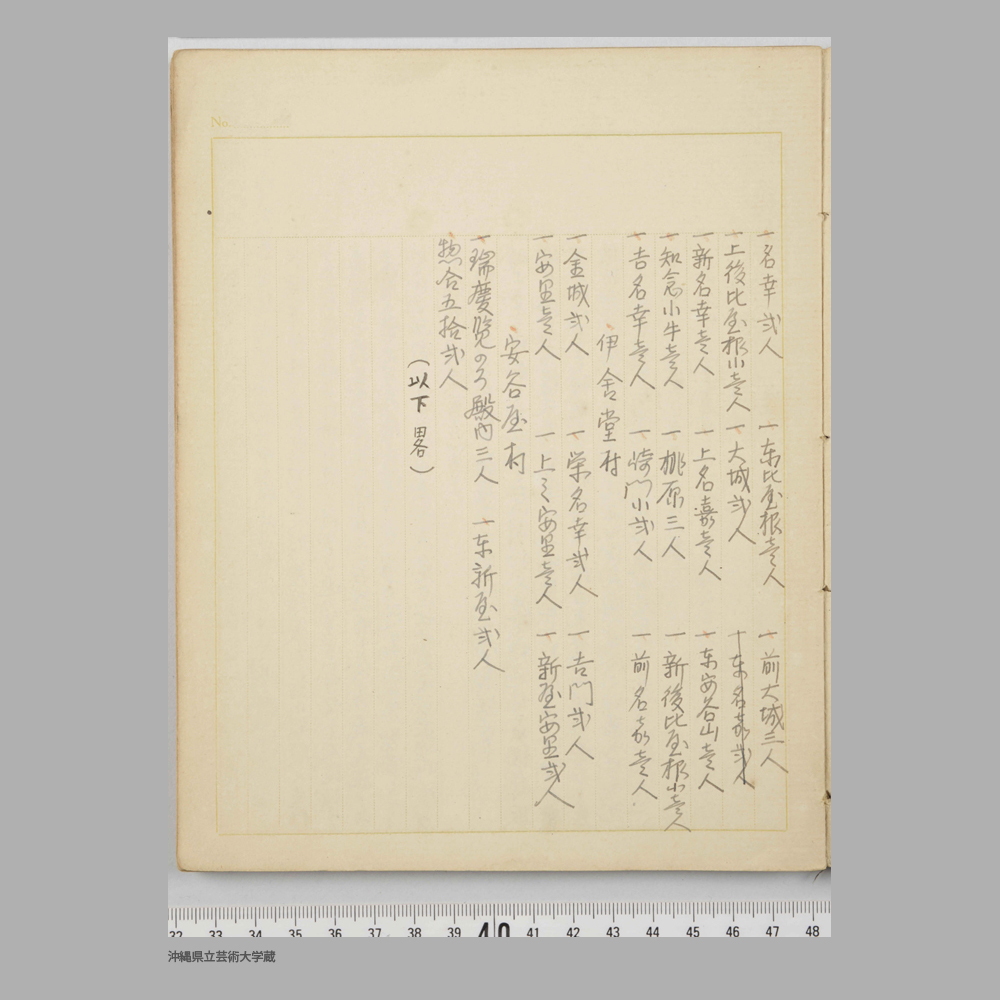 No.
一名幸弐人 一东比屋根壱人 一前大城三人
一上後比屋根小壱人 一大城弐人 一东名嘉弐人
一新名幸壱人 一上名嘉壱人 一东安谷山壱人
一知念小牛壱人 一桃原三人 一新後比屋根小壱人
一吉名幸壱人 一崎門小弐人 一前名嘉壱人
伊舎堂村
一金城弐人 一栄名幸弐人 一吉門弐人
一安里壱人 一上之安里壱人 一新屋安里弐人
安谷屋村
一瑞慶覧のろ殿内三人 一东新屋弐人
惣合五拾弐人
(以下畧)
32 33 34 35 36 37 38 39 40 41 42 43 44 45 46 47 48
沖縄県立芸術大学蔵